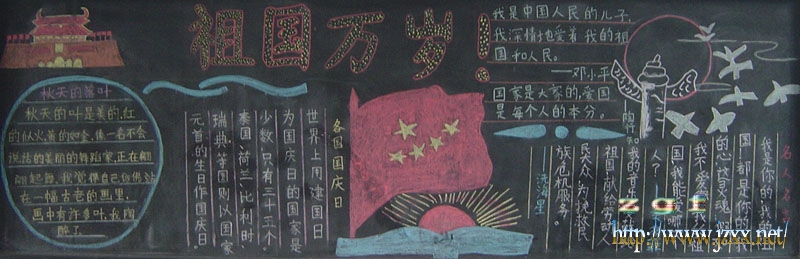 祖国万岁!
秋天的落叶
秋天的叶是美的,红
的似火,黄的如金,像一名不会
说话的美丽的舞蹈家,正在翩
翩起舞,我觉得自己仿佛站
在一幅古老的画里,
画中有许多叶,我陶
醉了
各国国庆日
世界上用建国日
为国庆日的国家是
少数,只有三十三个。
泰国、荷兰、比利时、
瑞典、等国则以国家
元首的生日作国庆日。
我是中国人民的儿子
我深情地爱着我的祖
国和人民。
——邓小平
国家是大家的,爱国
是每个人的本分。
——陶行知
名人名言
我是你的,我的
祖国!都是你的,
的心、这灵魂,假
我不爱你,我的祖
国,我能爱哪一
人?
我的音乐献给
祖国,献给劳动人
民大众,为挽救民
族危机服务。
——冼海星
zgt
http://www.jzxx.net/